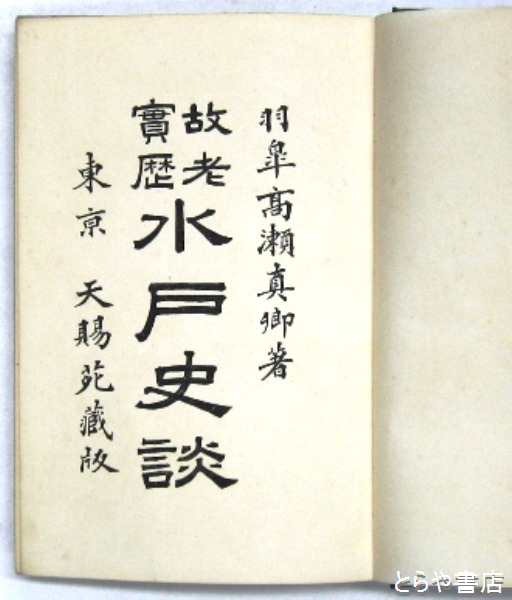 羽皐髙瀬真卿著
故老
實歴
水戸史談
東京 天賜苑藏版
とらや書店